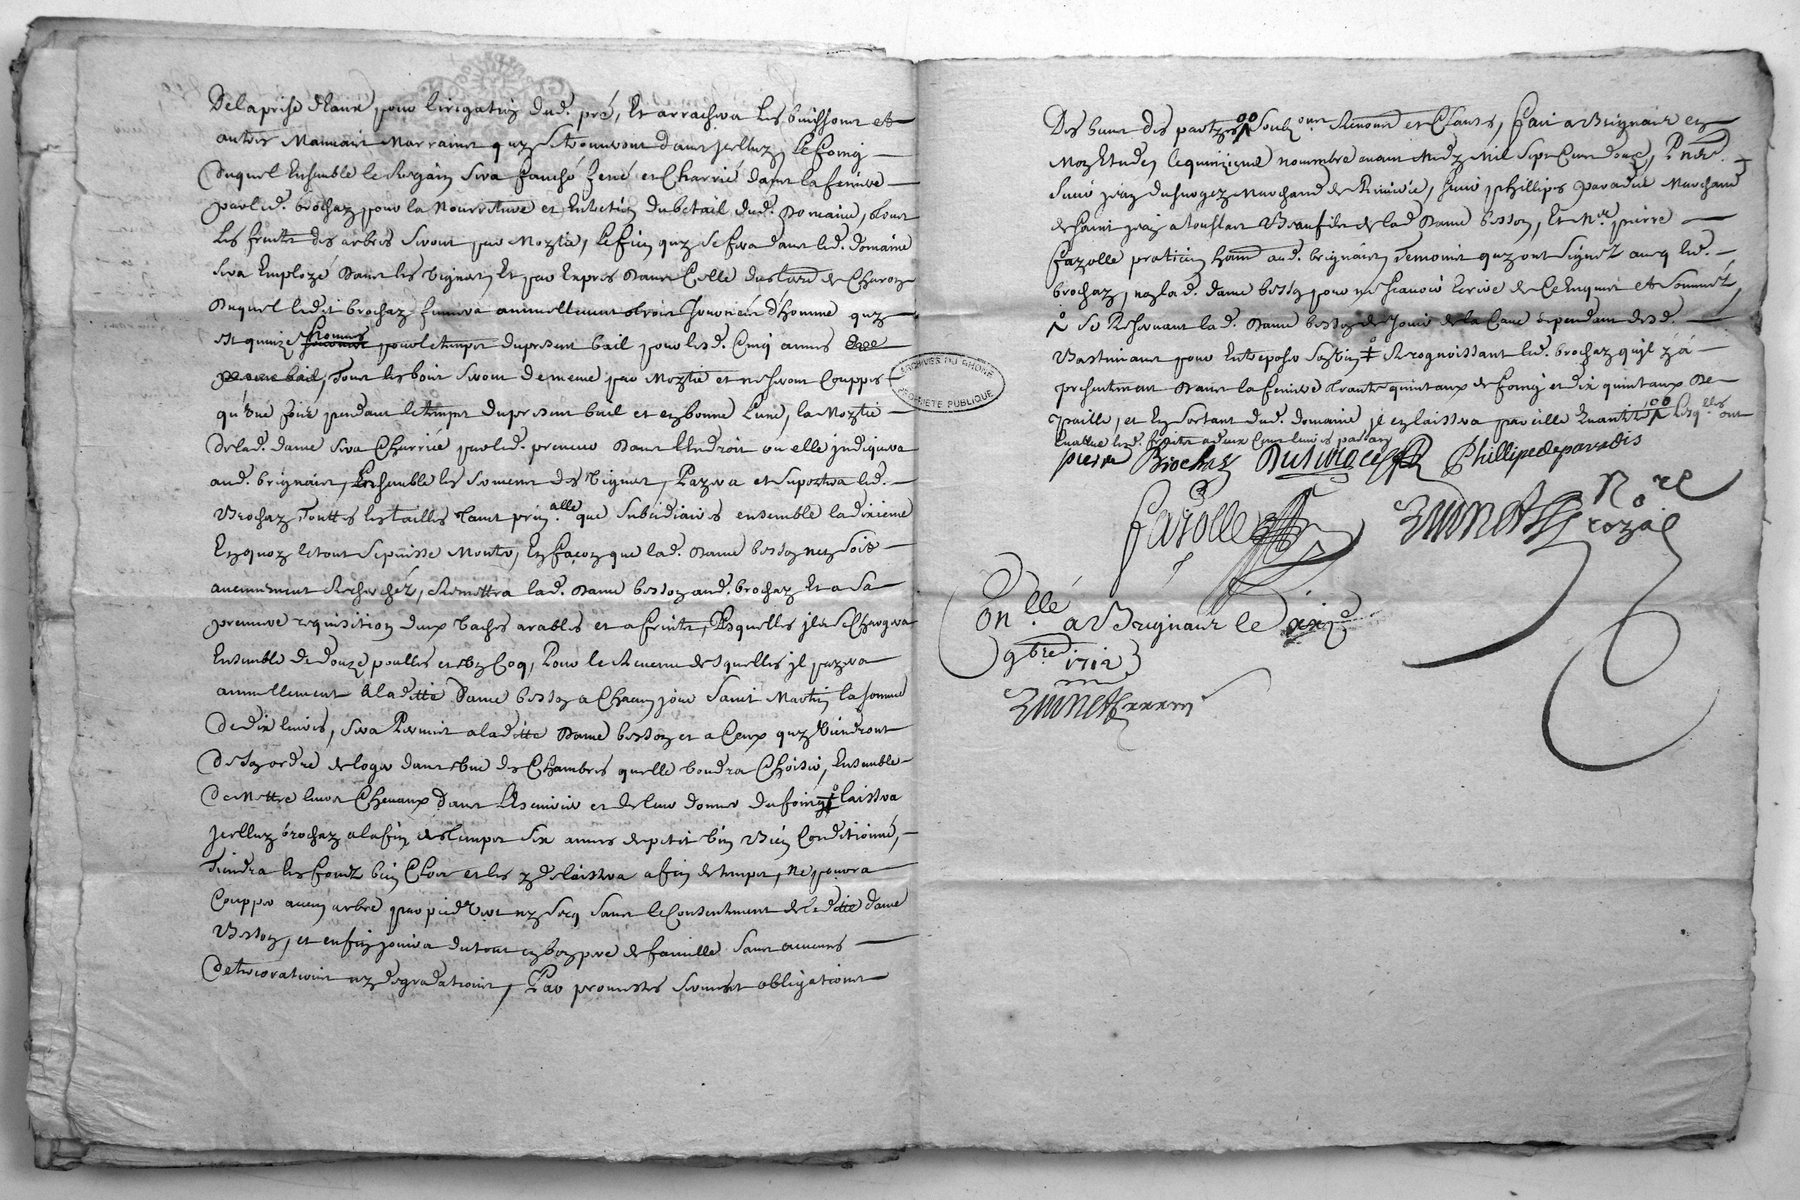 De la prise d'eaux pour l'irigation dud. pré, Et arrachera les buisssons et
autres Mauvais Marrains quy se trouveront dans jcelluy, le foing
Duquel Ensemble le Regain sera fauché fené et Charrié dans la feniere
par led. brochay pour la Nourriture et Entretien du betail dud. Domaine, tous
Les fruits des arbres seront par Moytié, le fien quy se fera dans led. domaine
sera Employé Dans les vignes, Et par Expres Dans Celle de
Duquel ledit brochay fournira annuellement trois journées d'homme quy
Et quinze hommes pour le temps du present bail pour lesd. Cinq annes
tous les bois seront de meme par Moytié et ne seront Couppés
qu'une fois pendant le temps du present bail et en bonne Lune, la Moytié
De lad. dame sera Charriée par led. preneur Dans l'Endroit ou elle jndiquera
aud. brignais, Ensemble les serments des vignes, Payera et suportera led.
Brochay Touttes les tailles tant prin.alle que subsidiaires ensemble la dixieme
En quoy le tout se puisse Monter, En façon que lad. Dame besson n'en soit
aucunement Recherchée, Remettra lad. Dame besson aud. brochay Et a sa
premiere requisition deux vaches arables et a fruits, Lesquelles jl se Chargera
Ensemble de douze poulles et un Coq, Pour le Revenu desquelles jl payera
annuellement a laditte Dame besson a Chacun jour saint Martin la somme
De dix livres, sera Permit a laditte Dame besson et a Ceux quy viendront
De son ordre de loger dans une des Chambres quelle voudra Choisir, Ensemble
De Mettre leurs Chevaux Dans l'Escuirie et de leur donner du foing laissera
jcelluy brochay a la fin des temps six annes de petit bien Bien Conditionné,
Tiendra les fonds bien Clos et les y delaissera a fin de temps, Ne pourra
Coupper aucun arbre par pied vert ny secq sans le Consentement de laditte dame
Besson, et enfin jouira du tout en bon pere de famille sans aucunes
Deteriorations ny degradations, Par promesses serment obligations
Des biens des parties soub.ons Renon.ons et Clauses, fait a Brignais en
Mon Etude, le quinzieme novembre avant Midy Mil sept Cent douze, Presens
sieur jean Marchand de , sieur phillipes paradis Marchand
de saint jean a touslas Beaufils de lad Dame besson, Et Mre pierre
fayolle praticien aud. brignais, Temoins quy ont signez avecq led.
brochay, non lad. dame besson pour ne scavoir Ecrire de Ce Enquise et sommée,
se Reservant lad. Dame besson de jouir de la Cave dependant desd.
Bastiments pour Entreposer son vin Recognoissant led. brochay qu'il y a
presentement Dans la feniere trante quintaux de foing et dix quintaux De
paille, et En sortant dud. domaine jl en laissera pareille quantité Lesq.lles ont
Evallué led. fruits a deux Cens livres par an
pierre Brochay Phillipe de paradis
fayolle No.re royal
Con.llé a Brignais le
9bre 1712